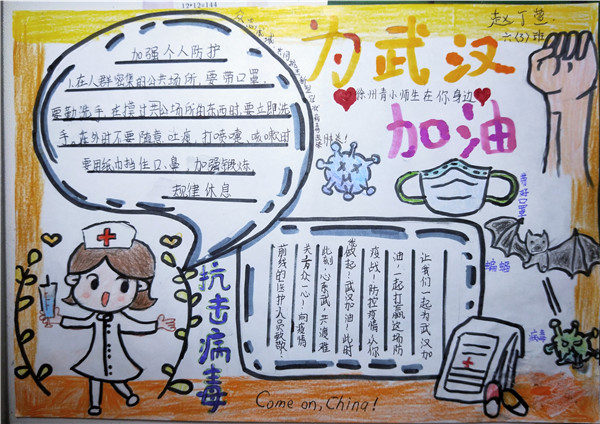 12*12=144
为武汉
加油
徐州青小师生在你身边
加强个人防护
1.在人群密集的公共场所,要带口罩,
要勤洗手,在摸过共公场所的东西时,要立即洗
手,在外时不要随意吐痰,打喷嚏、咳嗽时
要用纸巾挡住口、鼻,加强锻炼
规律休息
带好口罩
蝙蝠
病毒
抗击病毒
让我们一起为武汉加
油,一起打赢这场防
疫战!防控疫情从你
我做起!武汉加油!此时
此刻,心系武,共渡难
关!万众一心!向疫情
前线的医护人员致敬!
Come on, China!